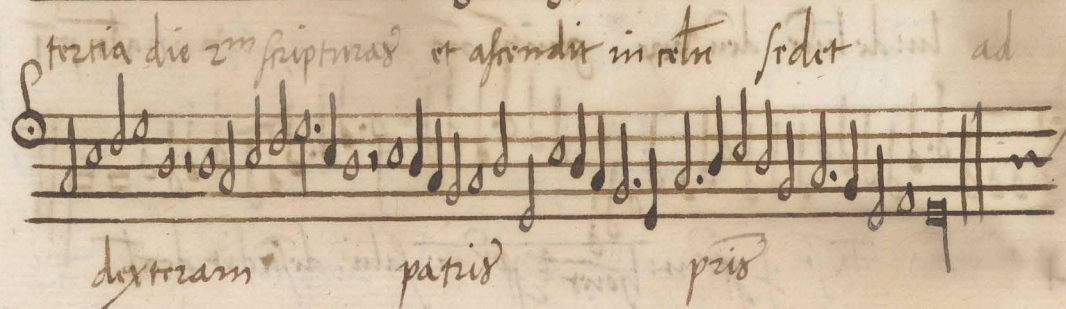 tertia die 2m scripturas et ascendit in celu sedet ad
dexteram patris pris